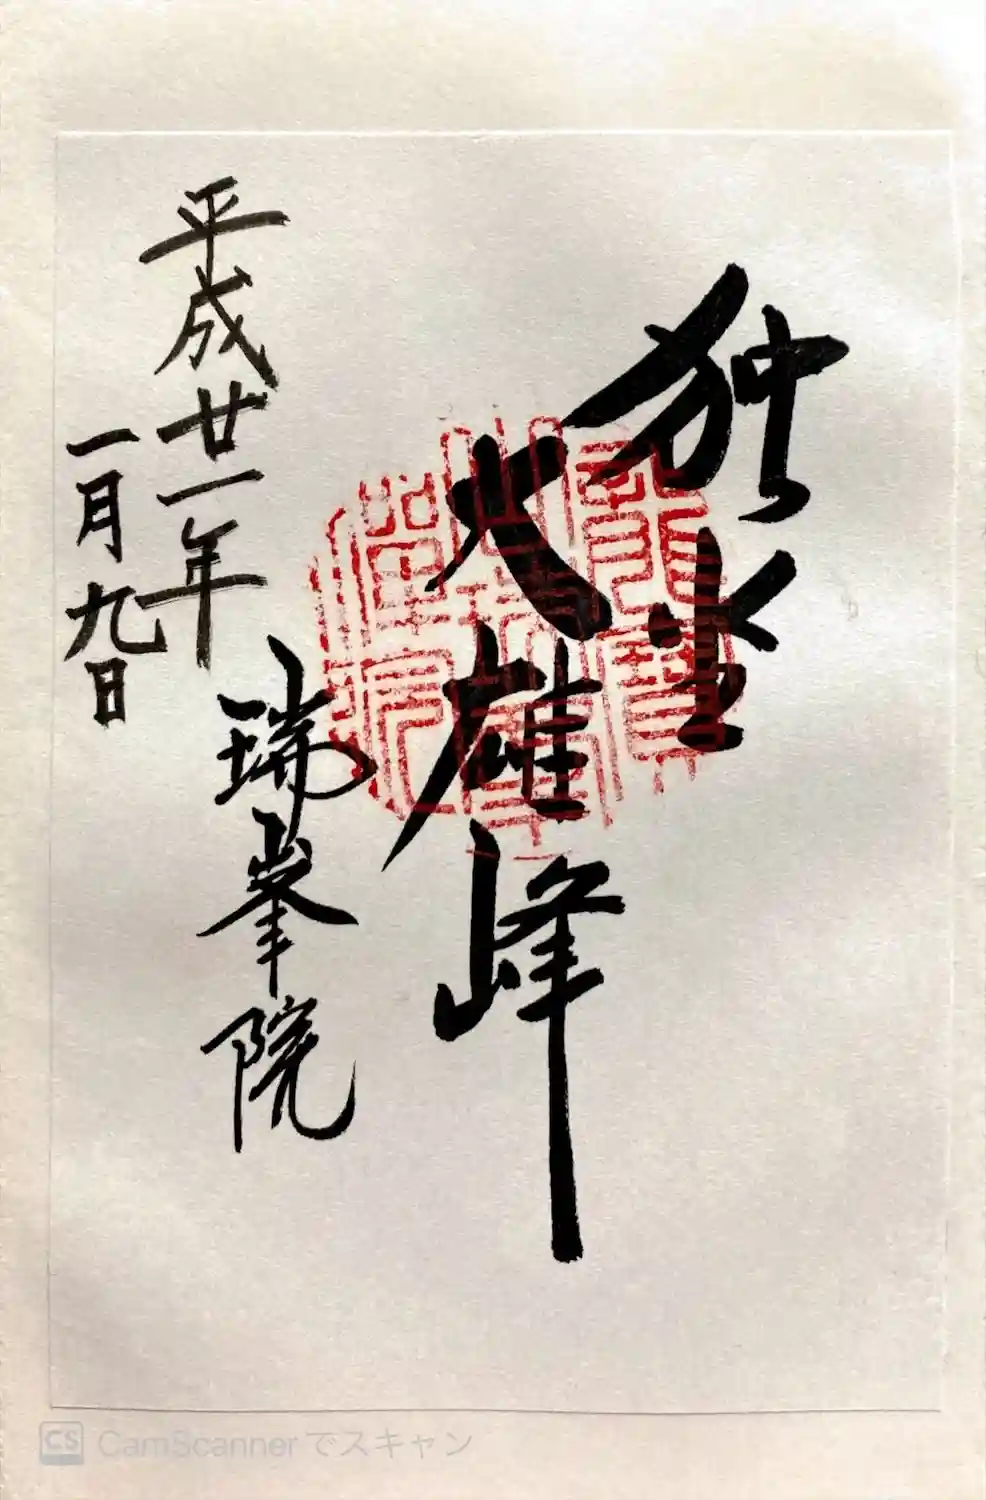 独坐
大雄峰
瑞峯院
平成廿一年
一月九日
CS CamScanner でスキャン